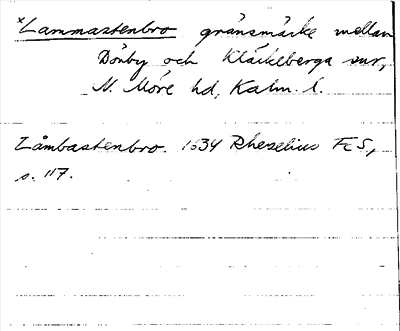 *Lammastenbro gränsmärke mellan
Dörby och Kläckeberga snr,
N. Möre hd, Kalm. l.
Låmbastenbro. 1634 Rhezelius FcS,
s. 117.